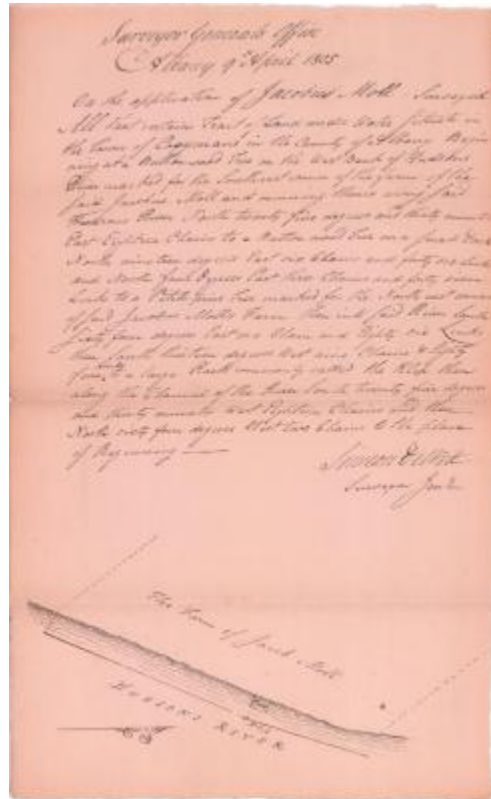 Surveyor General's Office
Albany 9th April 1805
On the application of Jacobus Moll Surveyed
All that certain Tract of Land under Water situate in
the town of in the County of Albany Begin
ning at a Button wood tree on the West Bank of Hudsons
River marked for the Southwest corner of the farm of the
said Jacobus Moll and running thence along said
Hudsons River North twenty five degrees and thirty minutes
East Eighteen Chains to a Button wood tree on a
North nineteen degrees East one Chain and forty one Links
and North four Degrees East three Chains and forty seven
Links to a White Pine tree marked for the North east corner
of said Jacobus Molls Farm then into said River South
Sixty four degrees East one Chain and Eighty one Links
then South thirteen degrees West nine Chains & Eighty
four to a large Rock commonly called the then
along the Channel of the River South twenty five degrees
and thirty minutes West Eighteen Chains and then
North sixty four degrees West two Chains to the place
of Beginning
Simeon DeWitt
Surveyor Genl
The Farm of Jacob Moll
HUDSONS RIVER